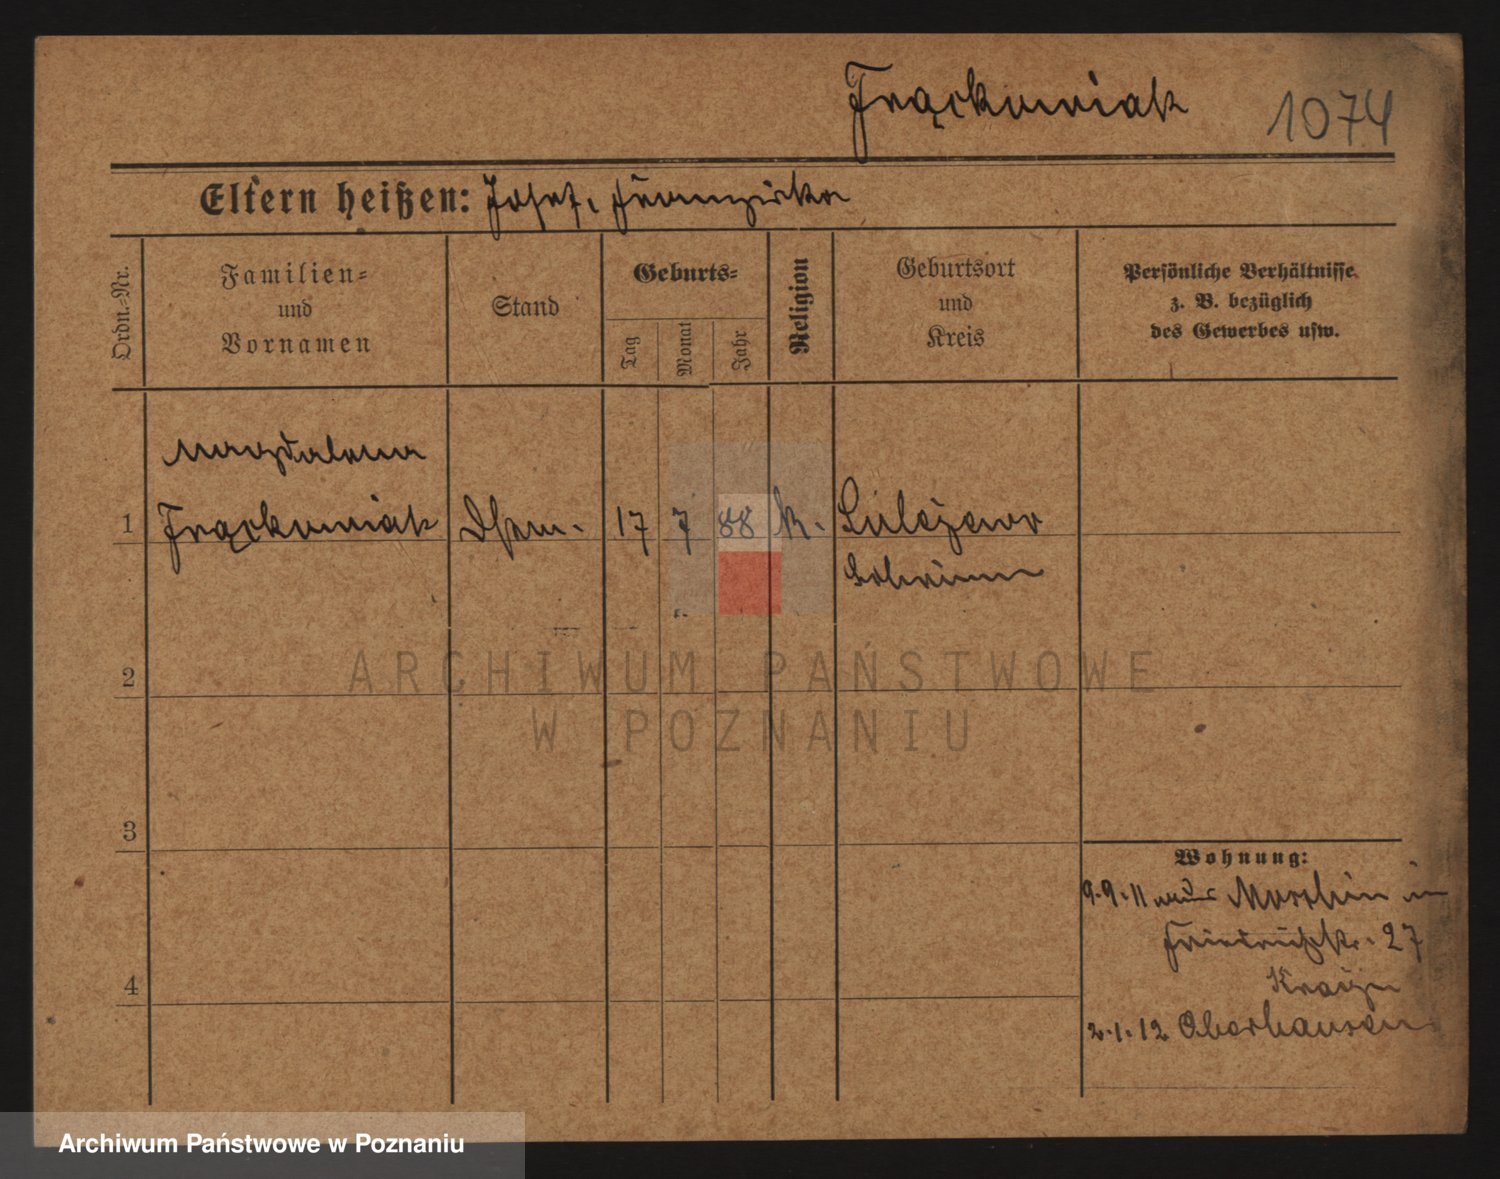 Frąckowiak 1074
Eltern heißen: Josef, Franziska
Ordn.-Nr.
Familien-
und
Vornamen
Stand
Geburts-
Tag
Monat
Jahr
Religion
Geburtsort
und
Kreis
Persönliche Verhältnisse
z. B. bezüglich
des Gewerbes usw.
Magdalena
1 Frąckowiak 17 7 88 k.
Schrimm
2
3
4
Wohnung:
9.9.11 aus
Friedrichstr. 27
2.1.12 Oberhausen
ARCHIWUM PAŃSTWOWE
W POZNANIU
Archiwum Państwowe w Poznaniu